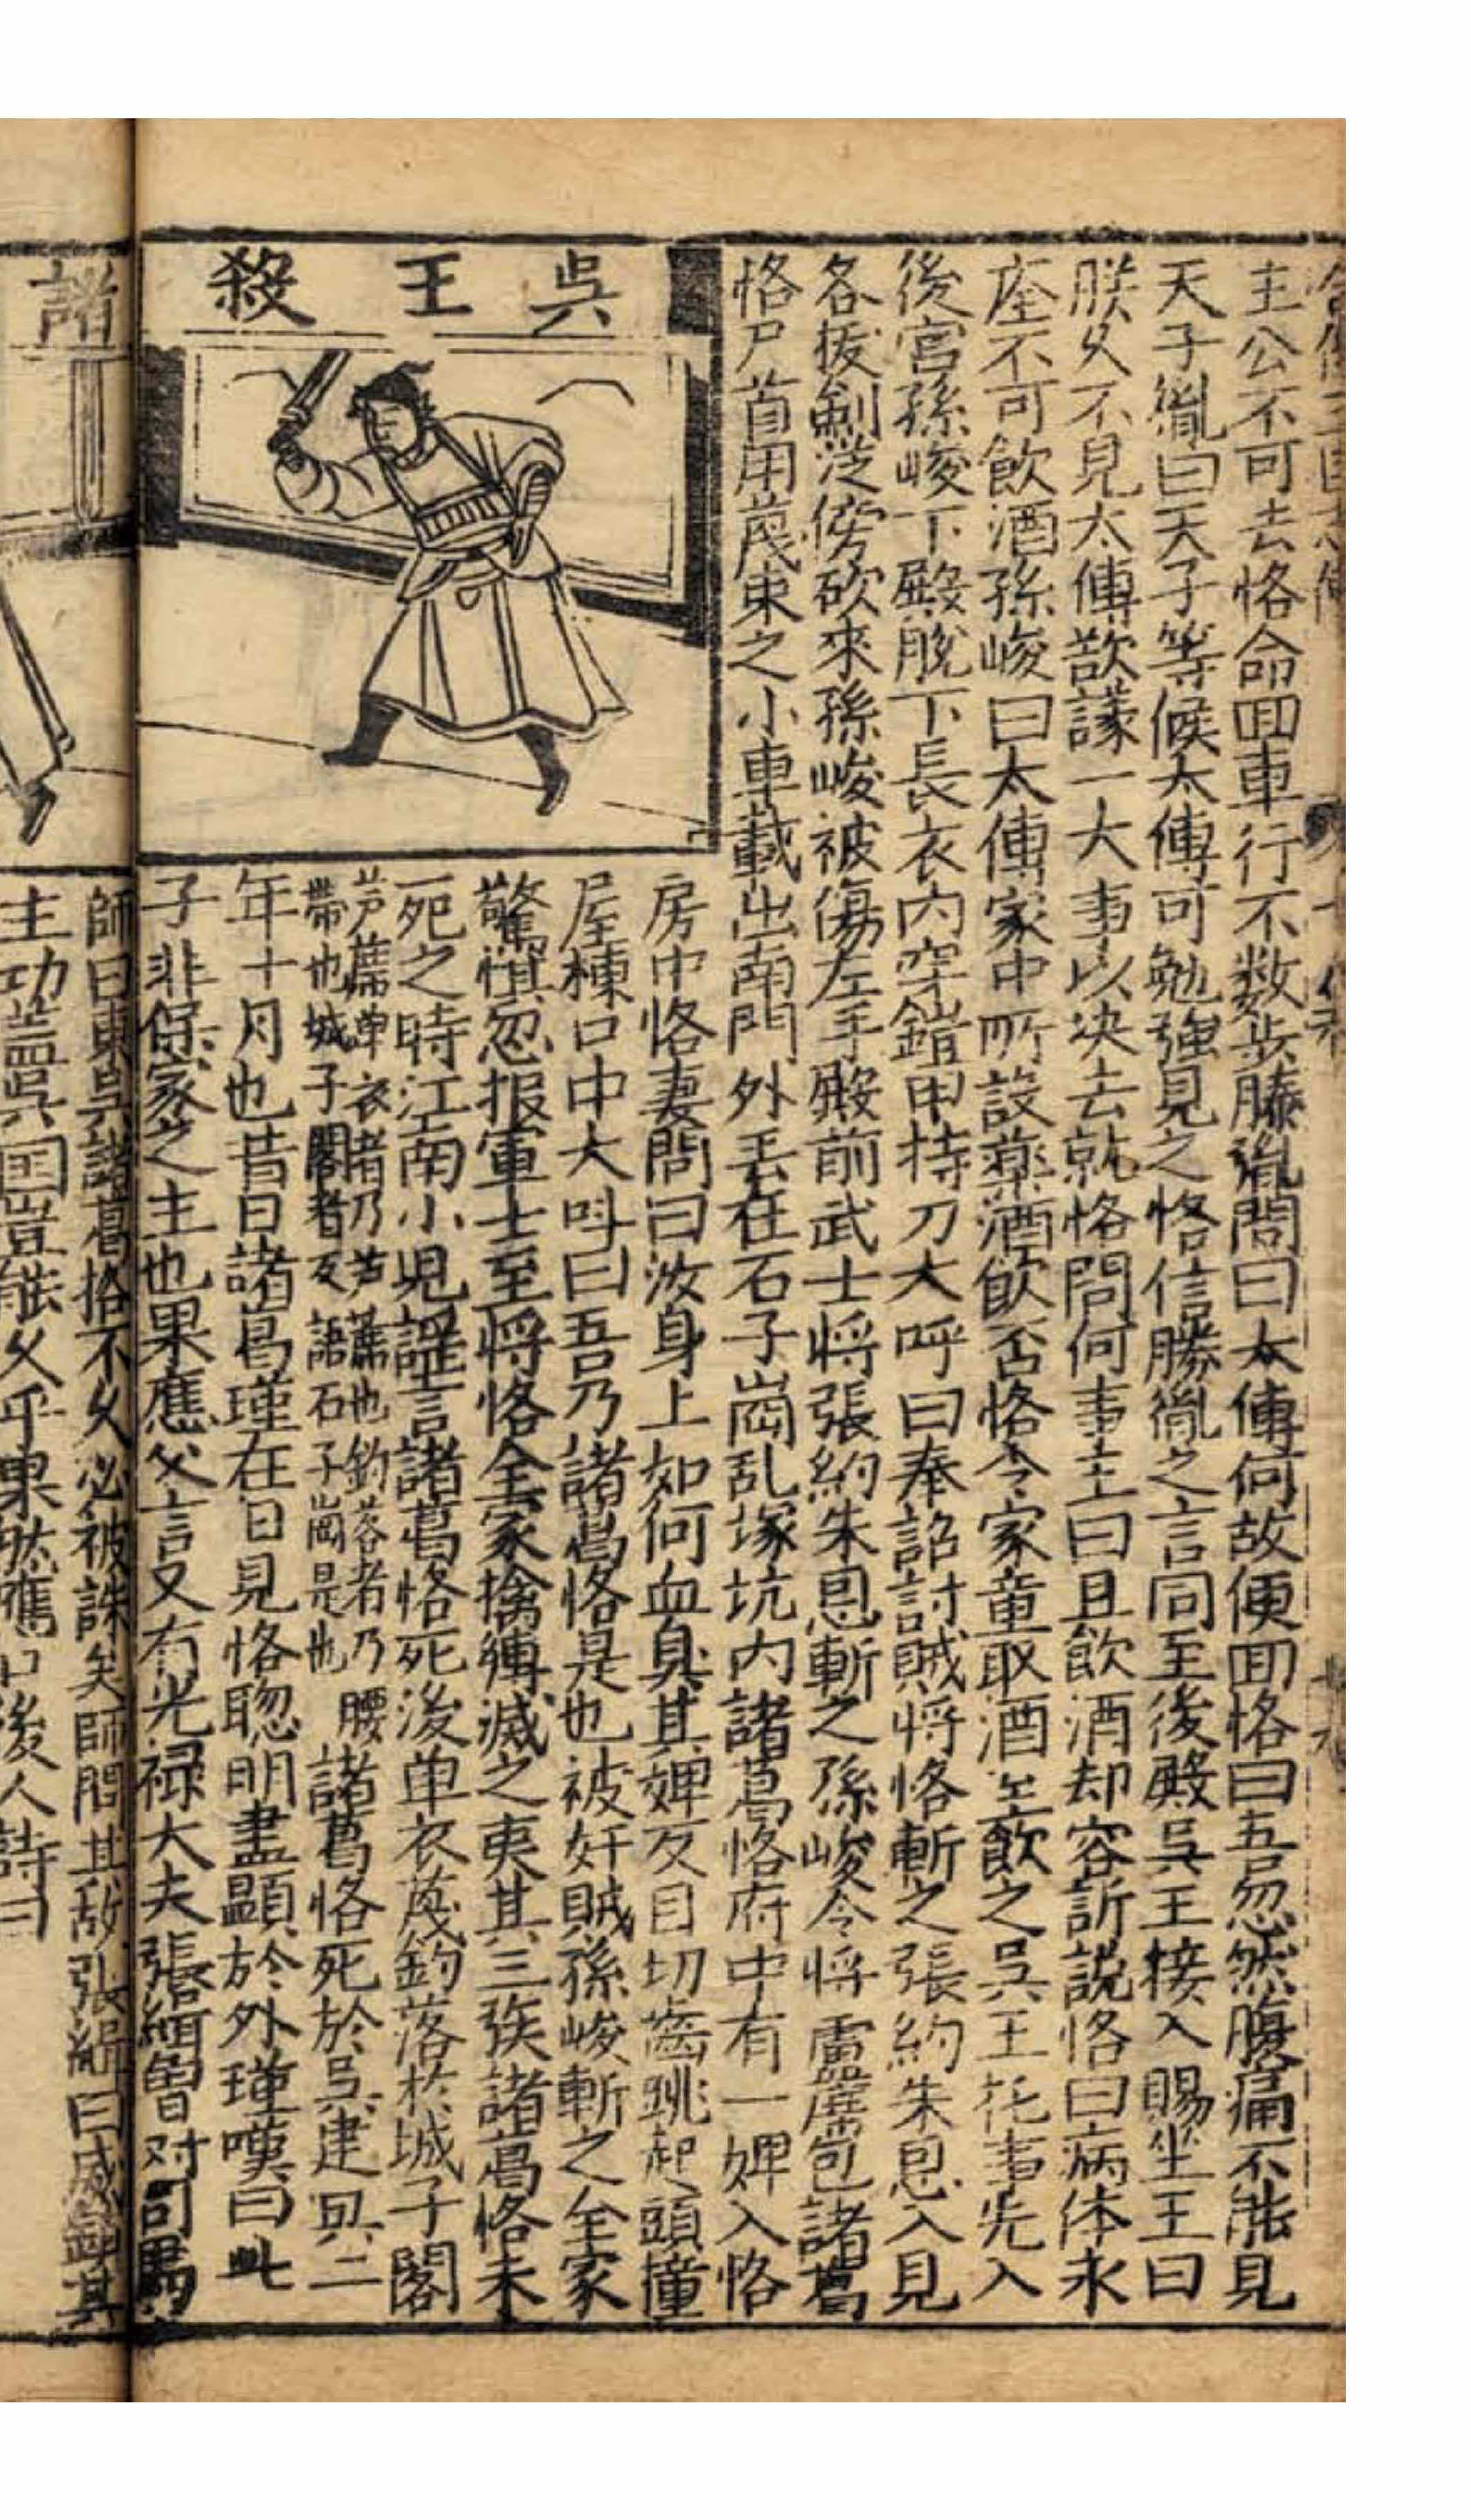 主公不可去恪命囬車行不数步滕胤問曰太傅何故便囬恪曰吾忽然腹痛不能見
天子胤曰天子等候太傅可勉強見之恪信滕胤之言同至後殿吳王接入賜坐王曰
朕久不見太傅欲議一大事以决去就恪問何事主曰且飲酒却容訴說恪曰病体未
痊不可飲酒孫峻曰太傅家中所設藥酒飲否恪令家童取酒至飲之吳王托事先入
後宮孫峻下殿脫下長衣内穿鎧甲持刀大呼曰奉詔討賊将恪斬之張約朱恩入見
各拔劍從傍砍來孫峻被傷左手殿前武士将張約朱恩斬之孫峻令将蘆蓆包諸葛
恪尸首用蔑束之小車載出南門外丢在石子崗乱塚坑内諸葛恪府中有一婢入恪
吳王殺
房中恪妻問曰汝身上如何血臭其婢反目切齒跳起頭撞
屋棟口中大呌曰吾乃諸葛恪是也被奸賊孫峻斬之全家
驚惧忽报軍士至将恪全家擒縛滅之夷其三族諸葛恪未
死之時江南小児謡言諸葛恪死後单衣蔑鈎落於城子閣
芦蓆单衣者乃芦蓆也鈎落者乃腰
帶也城子閣者反語石子崗是也
諸葛恪死於吳建興二
年十月也昔日諸葛瑾在日見恪聦明盡顕於外瑾嘆曰此
子非保家之主也果應父言又有光禄大夫張緝曽对司馬
諸
師曰東吳諸葛恪不久必被誅矣師問其故張緝曰威鎮其
主功盖吳囯豈能久乎果然應口後人詩曰